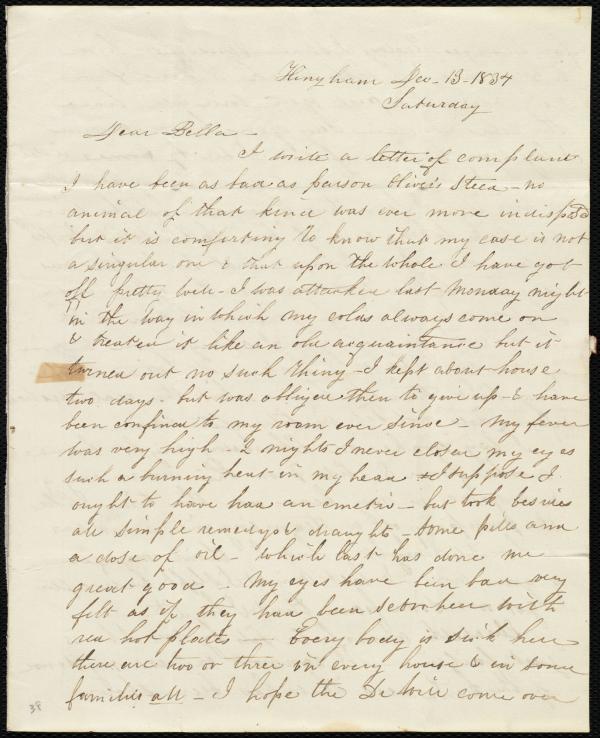 Hingham Dec - 13 - 1834
Saturday
Dear Bella -
I write a letter of complaint
I have been as bad as parson Oliver's Steed - no
animal of that kind was ever more indisposed
but it is comforting to know that my case is not
a singular one & that upon the whole I have got
off pretty well - I was attacked last Monday night
in the way in which my colds always come on
& treated it like an old acquaintance but it
turned out no such thing - I kept about house
two days - but was obliged then to give up - & have
been confined to my room ever sinse - My fever
was very high - 2 nights I never closed my eyes
such a burning heat in my head & I suppose I
ought to have had an emetic - but took besides
all simple remedys & draughts - some pills and
a dose of oil - which last has done me
great good - My eyes have been bad very
felt as if they had been scorched with
red hot plates - Every body is sick here
there are two or three in every house & in some
families all - I hope the Dr will come over
38